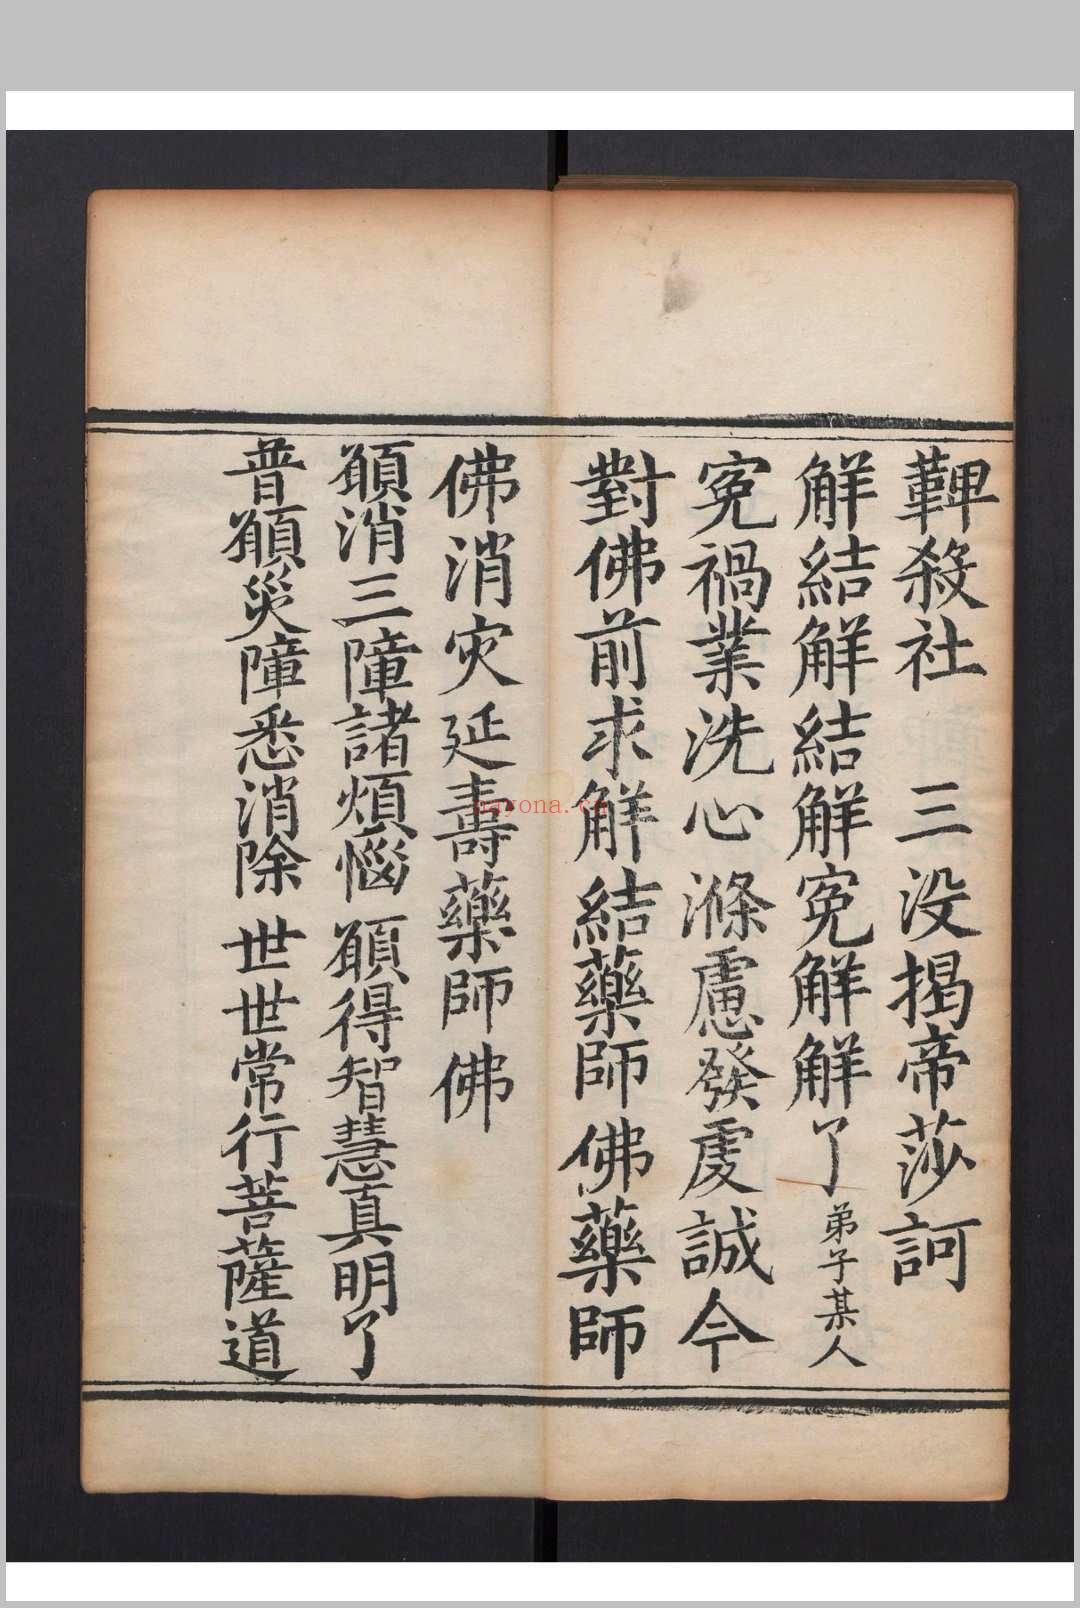 鞞殺社　三没揭帝莎訶
解結解結解寃解解了弟子某人
寃禍業洗心滌慮發虔誠今
對佛前求解結藥師佛藥師
佛消灾延壽藥師佛
願消三障諸煩惱　願得智慧真明了
普願災障悉消除　世世常行菩薩道